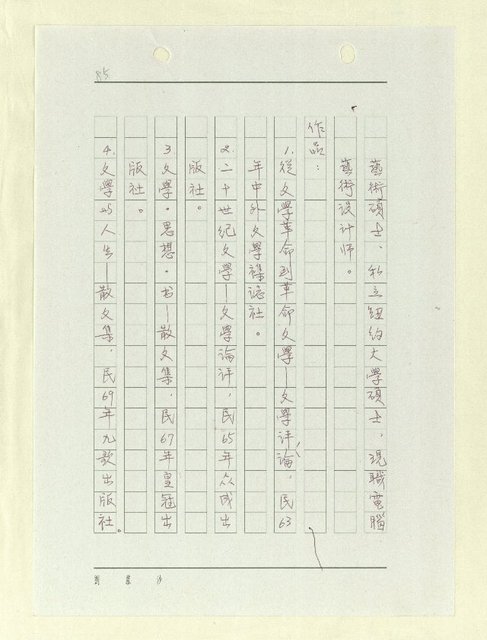 85
藝術碩士、私立紐約大學碩士，現職電腦
藝術設計师。
作品：
1.從文學革命到革命文學—文學評論，民63
年中外文學雜誌社。
2.二十世纪文學—文學論評，民65年众成出
版社。
3文學・思想・书—散文集，民67年皇冠出
版社。
4.文學与人生—散文集，民69年九歌出版社。